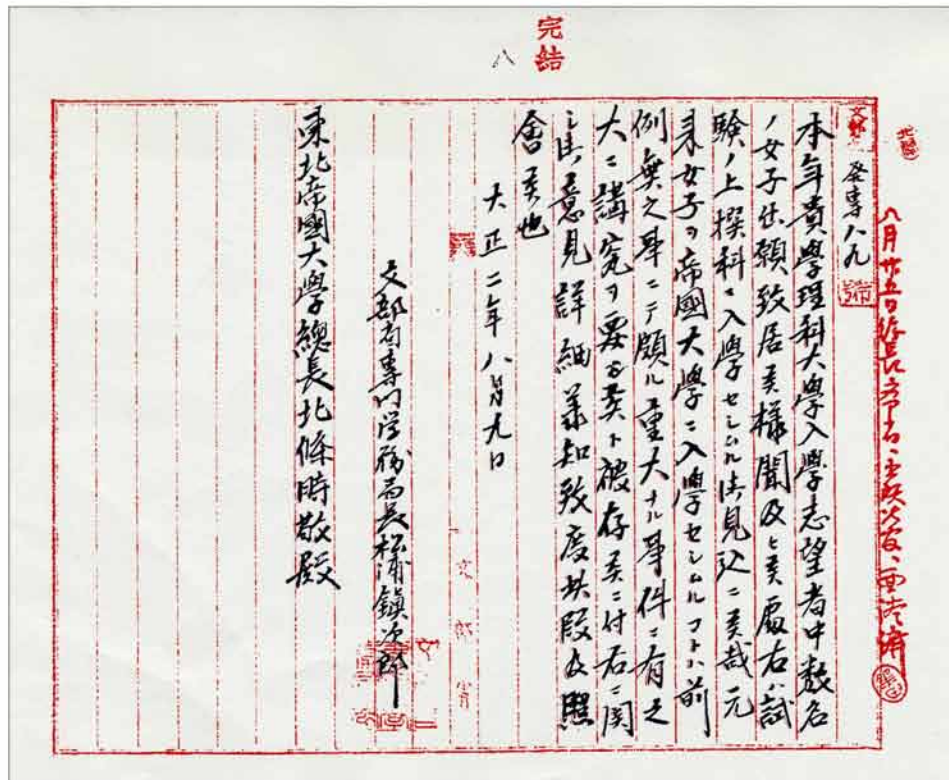 完結
八
文部省 發專八九 號
本年貴學理科大學入學志望者中數名
ノ女子出願致居候様聞及ヒ候處右ハ試
験ノ上撰科ニ入學セシムル御見込ニ候哉元
来女子ヲ帝國大學ニ入學セシムルコトハ前
例無之事ニテ頗ル重大ナル事件ニ有之
大ニ講究ヲ要シ候ト被存候ニ付右ニ関
シ御意見詳細承知致度此段及照
會候也
大正二年八月九日
文部省
文部省専門学務局長松浦鎮次郎
東北帝國大學總長北條時敬殿